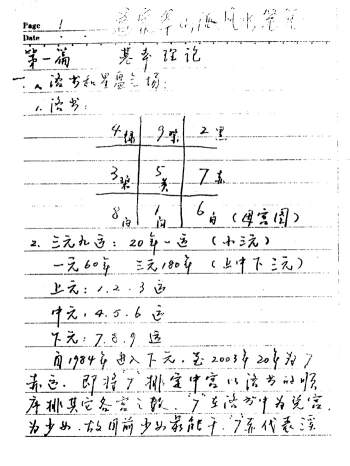 Page 1
Date
第一篇 基本理论
一、洛书和星盘之场:
1. 洛书:
4绿 9紫 2黑
3碧 5黄 7赤
8白 1白 6白 (母宫图)
2. 三元九运: 20年一运 (小三元)
一元60年 三元180年 (上中下三元)
上元: 1、2、3 运
中元: 4、5、6 运
下元: 7、8、9 运
自1984年进入下元, 至2003年20年为7
赤运. 即将"7"排室中宫以洛书的顺
序排其它各宫之数. "7"在洛书中为兑宫
为少女, 故目前少女最能干, "7"亦代表淫